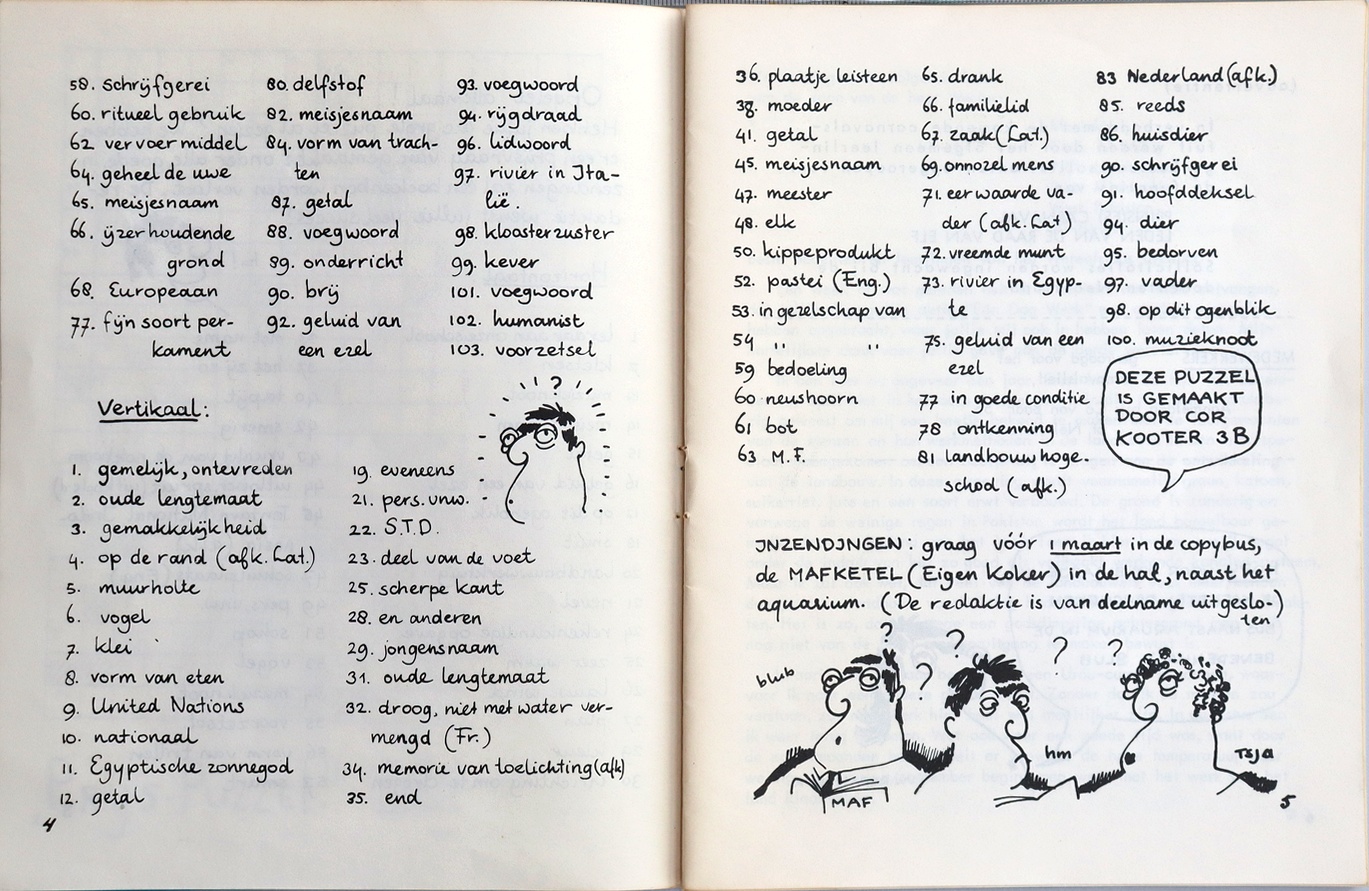 58. schrijfgerei
60. ritueel gebruik
62 vervoermiddel
64. geheel de uwe
65. meisjesnaam
66. ijzerhoudende
grond
68. Europeaan
77. fijn soort per-
kament
80. delfstof
82. meisjesnaam
84. vorm van trach-
ten
87. getal
88. voegwoord
89. onderricht
90. brij
92. geluid van
een ezel
93. voegwoord
94. rijgdraad
96. lidwoord
97. rivier in Ita-
lië.
98. kloosterzuster
99. kever
101. voegwoord
102. humanist
103. voorzetsel
Vertikaal:
?
1. gemelijk, ontevreden
2. oude lengtemaat
3. gemakkelijkheid
4. op de rand (afk. Lat.)
5. muurholte
6. vogel
7. klei
8. vorm van eten
9. United Nations
10. nationaal
11. Egyptische zonnegod
12. getal
19. eveneens
21. pers. vnw.
22. S.T.D.
23. deel van de voet
25. scherpe kant
28. en anderen
29. jongensnaam
31. oude lengtemaat
32. droog, niet met water ver-
mengd (Fr.)
34. memorie van toelichting (afk)
35. end
4
36. plaatje leisteen
38. moeder
41. getal
45. meisjesnaam
47. meester
48. elk
50. kippeprodukt
52. pastei (Eng.)
53. in gezelschap van
54 " "
59 bedoeling
60 neushoorn
61 bot
63 M.F.
65. drank
66. familielid
67. zaak (Lat.)
69. onnozel mens
71. eerwaarde va-
der (afk. Lat)
72. vreemde munt
73. rivier in Egyp-
te
75. geluid van een
ezel
77 in goede conditie
78 ontkenning
81 landbouwhoge.
school (afk.)
83 Nederland (afk.)
85. reeds
86. huisdier
90. schrijfgerei
91. hoofddeksel
94. dier
95. bedorven
97. vader
98. op dit ogenblik
100. muzieknoot
DEZE PUZZEL
IS GEMAAKT
DOOR COR
KOOTER 3B
INZENDINGEN: graag vóór 1 maart in de copybus,
de MAFKETEL (Eigen Koker) in de hal, naast het
aquarium. (De redaktie is van deelname uitgeslo-
ten)
? ? ? ? ?
blub
hm
TSJA
MAF
5